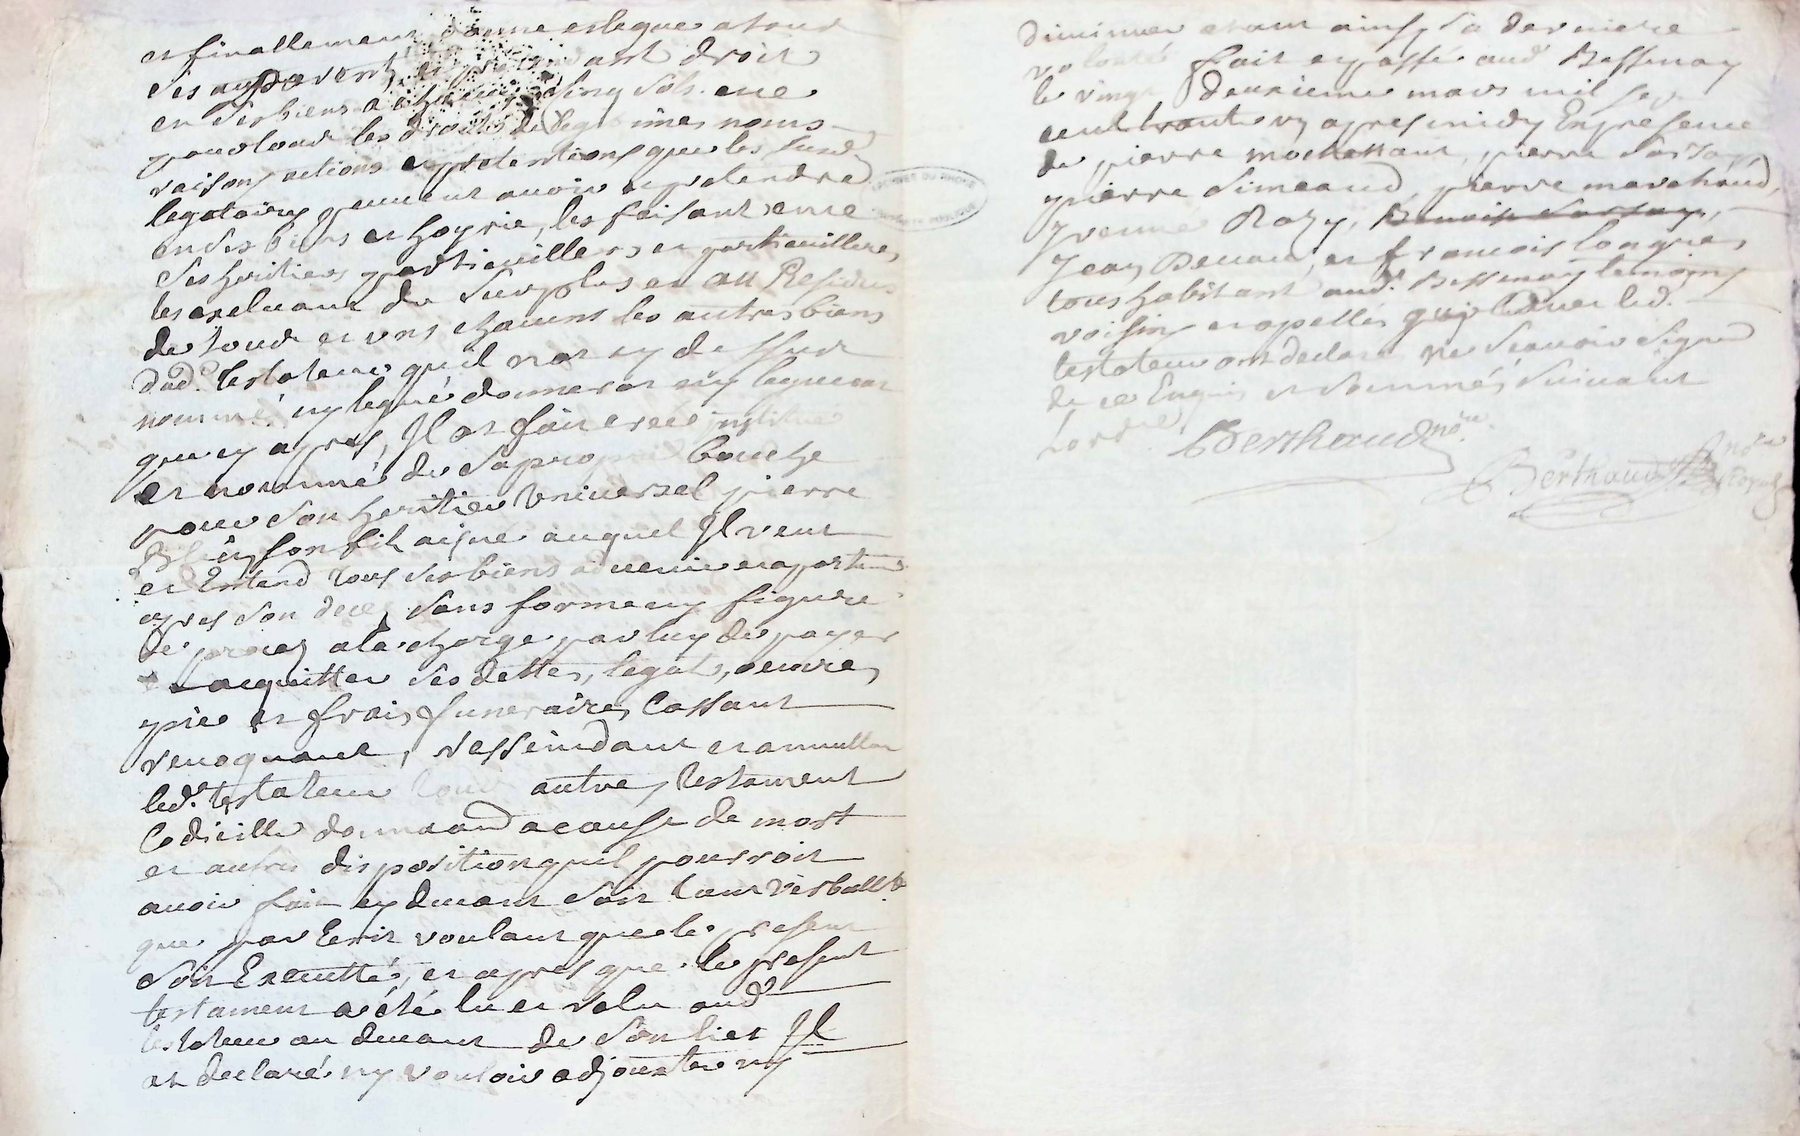 et finallement donne et legue a tous
ses autres pretendant droit
en ses biens a chacun cinq sols et ce
pour tous les droits de legitimes noms
raisons actions et pretentions que les susd.
legataires peuvent avoir et pretendre
en ses biens et hoyrie, les faisant en ce
ses heritiers particuilliers et particuilleres
les excluant du surplus et au Residus
de tous et uns chacuns les autres biens
dud. testateur qu'il n'at cy dessus
nommé ny legué donnerat ny leguerat
que cy apres, Il at fait créé institué
et nommé de sa propre bouche
pour son heritier Universel pierre
son fils aigné auquel Il veut
et Entend tous ses biens advenir et apartenir
apres son deces sans forme ny figure
de proces a la charge par luy de payer
et acquitter ses dettes, legats, oeuvres
pie et frais funeraires Cassant
revoquant, ressindant et annullant
led. testateur tous autres testament
Codicille donnaond a cause de mort
et autres disposition quil pourroit
avoir fait cy devant soit tant verballt.
que par Ecrit voulant que le present
soit Executté, et apres que le present
testament a été lu et relu aud.
testateur au devant de son liet Il
at declaré ny vouloir adjoutter ny
diminuer etant ainsy sa derniere
volonté fait et passé aud. Bessenay
le vingt deuxieme mars mil sep
cent trante un apres midy En presence
de pierre mochettant, pierre
pierre Simeand, pierre marchand,
yvenne Razy, Benoist
Jean Denave, et francois longues
tous habitant aud. Bessenay temoins
voisins et apellés qui led.
testateur ont declaré ne scavoir signer
de ce Enquis et sommés suivant
Lordre
Berthaud nore.
Berthaud Royal